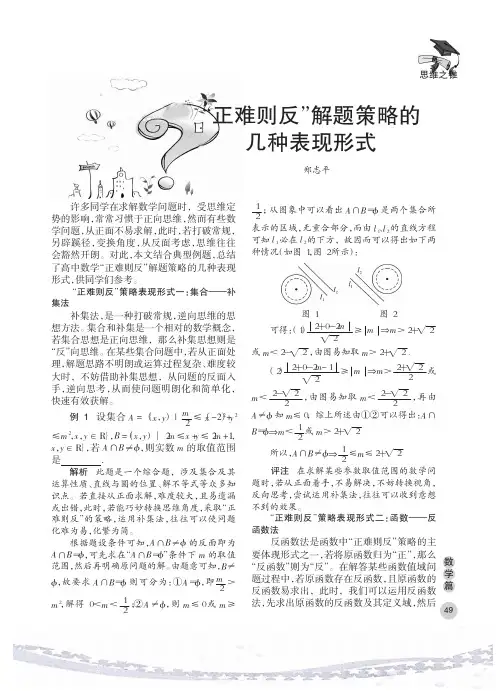 思维之锥
“正难则反”解题策略的
几种表现形式
郑志平
许多同学在求解数学问题时，受思维定
势的影响，常常习惯于正向思维，然而有些数
学问题，从正面不易求解，此时，若打破常规，
另辟蹊径，变换角度，从反面考虑，思维往往
会豁然开朗。对此，本文结合典型例题，总结
了高中数学“正难则反”解题策略的几种表现
形式，供同学们参考。
“正难则反”策略表现形式一：集合——补
集法
补集法，是一种打破常规，逆向思维的思
想方法。集合和补集是一个相对的数学概念，
若集合思想是正向思维，那么补集思想则是
“反”向思维。在某些集合问题中，若从正面处
理，解题思路不明朗或运算过程复杂、难度较
大时，不妨借助补集思想，从问题的反面入
手，逆向思考，从而使问题明朗化和简单化，
快速有效获解。
例 1 设集合 A = {(x, y) | m/2 ≤ (x-2)²+y²
≤m², x, y∈R}, B = {(x, y) | 2m≤x+y≤2m+1,
x, y∈R}, 若 A∩B≠ϕ, 则实数 m 的取值范围
是________.
解析 此题是一个综合题，涉及集合及其
运算性质、直线与圆的位置、解不等式等众多知
识点。若直接从正面求解，难度较大，且易遗漏
或出错，此时，若能巧妙转换思维角度，采取“正
难则反”的策略，运用补集法，往往可以使问题
化难为易，化繁为简。
根据题设条件可知，A∩B≠ϕ 的反面即为
A∩B=ϕ，可先求在“A∩B=ϕ”条件下 m 的取值
范围，然后再明确原问题的解。由题意可知，B≠
ϕ，故要求 A∩B=ϕ 则可分为：①A=ϕ，即 m/2 >
m²，解得 0<m<1/2；②A≠ϕ，则 m≤0 或 m≥
1/2；从图象中可以看出 A∩B=ϕ 是两个集合所
表示的区域，无重合部分，而由 l₁、l₂ 的直线方程
可知 l₁ 必在 l₂ 的下方，故因而可以得出如下两
种情况（如图 1、图 2 所示）：
l₂
l₁
l₂
l₁
图 1 图 2
可得：(1) |2+0-2m|/√2 ≥ |m| ⇒ m > 2+√2
或 m < 2-√2，由图易知取 m > 2+√2.
(2) |2+0-2m-1|/√2 ≥ |m| ⇒ m > (2+√2)/2 或
m < (2-√2)/2，由图易知取 m < (2-√2)/2，再由
A≠ϕ 知 m≤0. 综上所述由①②可以得出：A∩
B=ϕ⇒m<1/2 或 m>2+√2
所以，A∩B≠ϕ⇒1/2≤m≤2+√2
评注 在求解某些参数取值范围的数学问
题时，若从正面着手，不易解决，不妨转换视角，
反向思考，尝试运用补集法，往往可以收到意想
不到的效果。
“正难则反”策略表现形式二：函数——反
函数法
反函数法是函数中“正难则反”策略的主
要体现形式之一，若将原函数归为“正”，那么
“反函数”则为“反”。在解答某些函数值域问
题过程中，若原函数存在反函数，且原函数的
反函数易求出，此时，我们可以运用反函数
法，先求出原函数的反函数及其定义域，然后
数
学
篇
49